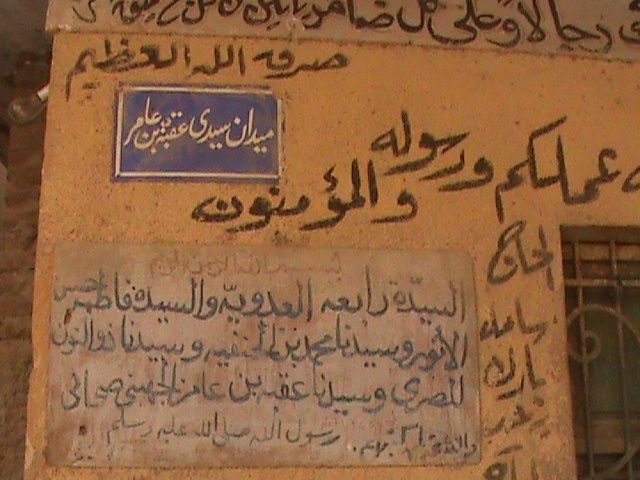 رجالا وعلى كل ضامر يأتين من كل فج عميق
صدق الله العظيم
ميدان سيدى عقبة بن عامر
عملكم ورسوله
والمؤمنون
بسم الله الرحمن الرحيم
السيدة رابعه العدوية والسيدة فاطمه
الأنور وسيدنا محمد بن الحنفيه وسيدنا ذو النون
المصرى وسيدنا عقبه بن عامر الجهنى صحابى
رسول الله صلى الله عليه وسلم
الحاج